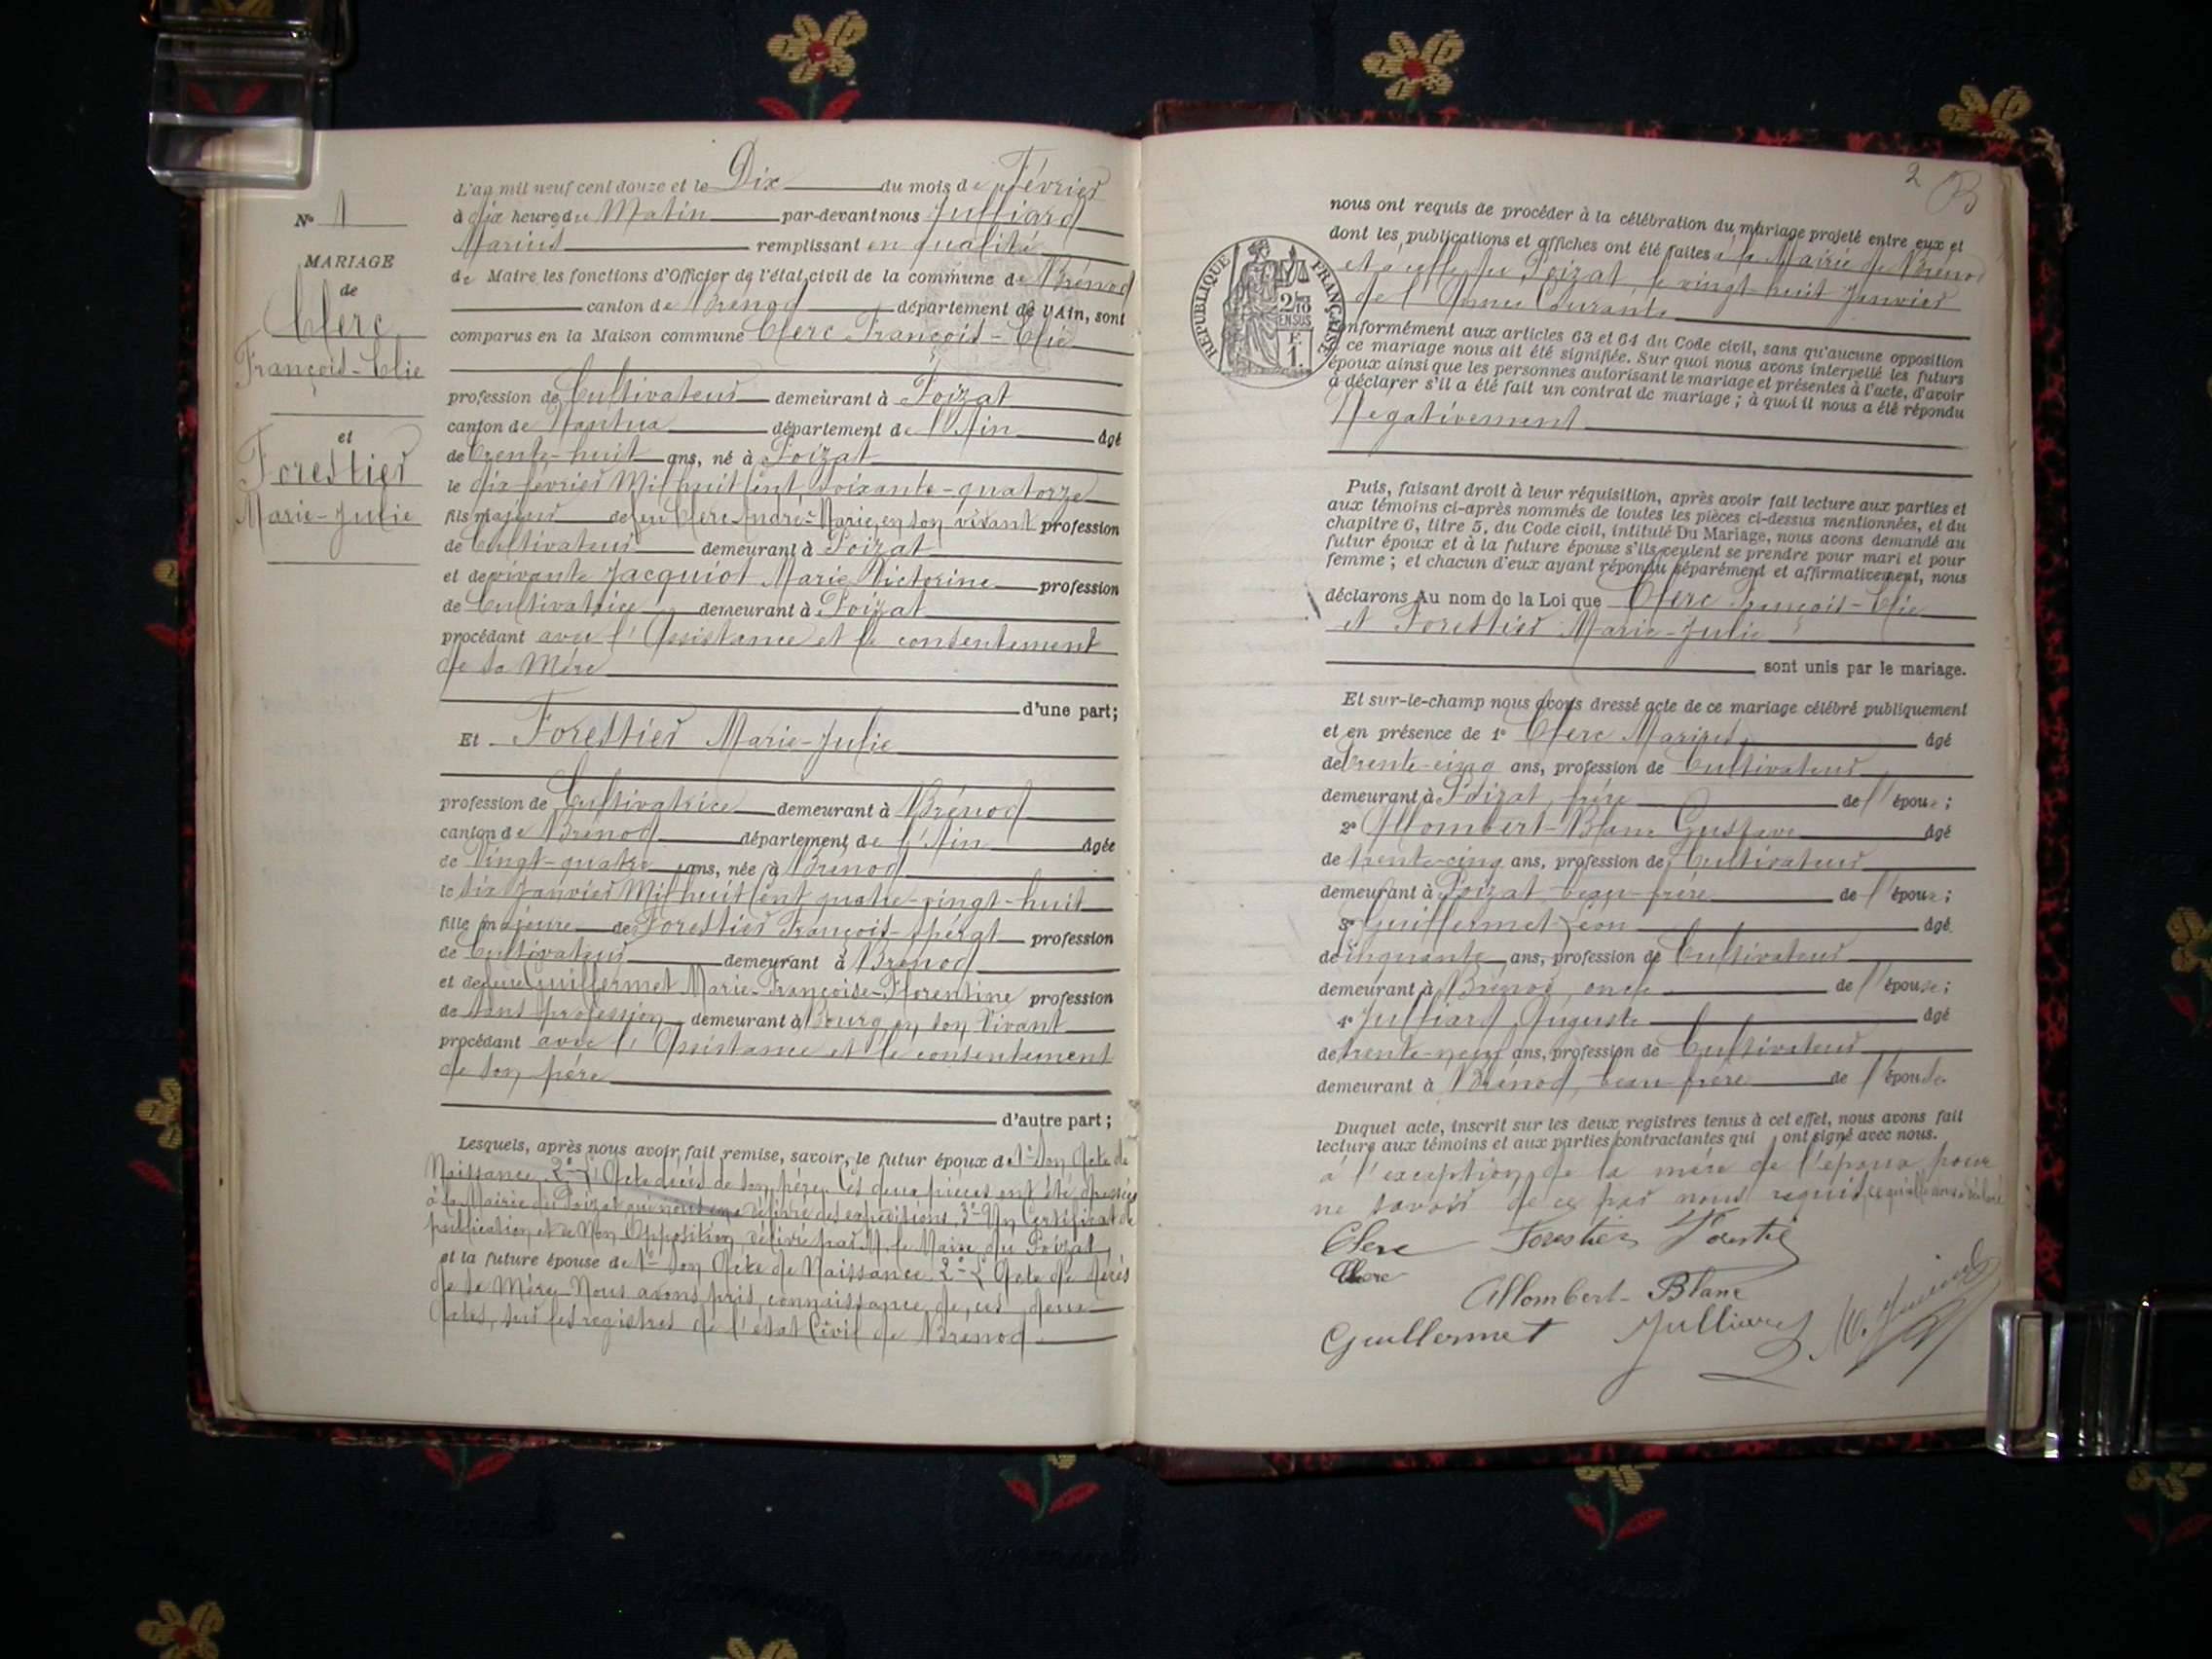 N° 1
MARIAGE
de
Clerc
François-Elie
et
Forestier
Marie-Julie
L'an mil neuf cent douze et le Dix du mois de Février
à dix heures du Matin par-devant nous Julliard
Marius remplissant en qualité
de Maire les fonctions d'Officier de l'état civil de la commune de Brénod
canton de Brénod département de l'Ain, sont
comparus en la Maison commune Clerc François-Elie
profession de Cultivateur demeurant à Poizat
canton de Nantua département de l'Ain âgé
de trente-huit ans, né à Poizat
le dix février Mil huit cent soixante-quatorze
fils majeur de feu Clerc André-Marie, en son vivant profession
de Cultivateur demeurant à Poizat
et de vivante Jacquiot Marie Victorine profession
de Cultivatrice demeurant à Poizat
procédant avec l'Assistance et le consentement
de sa Mère
d'une part;
Et Forestier Marie-Julie
profession de Cultivatrice demeurant à Brénod
canton de Brénod département de l'Ain âgée
de Vingt-quatre ans, née à Brénod
le six Janvier Mil huit cent quatre-vingt-huit
fille majeure de Forestier François-Spérat profession
de Cultivateur demeurant à Brénod
et de feue Guillermet Marie-Françoise-Florentine profession
de sans profession demeurant à Bourg en son Vivant
procédant avec l'Assistance et le consentement
de son père
d'autre part;
Lesquels, après nous avoir fait remise, savoir, le futur époux de 1° Son Acte de
Naissance. 2° L'Acte décès de son père. Ces deux pièces ont été dressées
à la Mairie du Poizat qui nous en a délivré des expéditions. 3° Un Certificat de
publication et de Non Opposition, délivré par M. le Maire du Poizat
et la future épouse de 1° Son Acte de Naissance. 2° L'Acte de décès
de sa Mère. Nous avons pris connaissance de ces deux
Actes, sur les registres de l'état Civil de Brénod.
2
B
REPUBLIQUE FRANÇAISE
2/10 EN SUS
F. 1.
nous ont requis de procéder à la célébration du mariage projeté entre eux et
dont les publications et affiches ont été faites à la Mairie de Brénod
et à celle du Poizat, le vingt-huit Janvier
de l'Année Courante
conformément aux articles 63 et 64 du Code civil, sans qu'aucune opposition
ce mariage nous ait été signifiée. Sur quoi nous avons interpellé les futurs
époux ainsi que les personnes autorisant le mariage et présentes à l'acte, d'avoir
à déclarer s'il a été fait un contrat de mariage; à quoi il nous a été répondu
Négativement
Puis, faisant droit à leur réquisition, après avoir fait lecture aux parties et
aux témoins ci-après nommés de toutes les pièces ci-dessus mentionnées, et du
chapitre 6, titre 5, du Code civil, intitulé Du Mariage, nous avons demandé au
futur époux et à la future épouse s'ils veulent se prendre pour mari et pour
femme; et chacun d'eux ayant répondu séparément et affirmativement, nous
déclarons Au nom de la Loi que Clerc François-Elie
et Forestier Marie-Julie
sont unis par le mariage.
Et sur-le-champ nous avons dressé acte de ce mariage célébré publiquement
et en présence de 1° Clerc Marius, âgé
de trente-cinq ans, profession de Cultivateur
demeurant à Poizat, frère de l'époux;
2° Allombert-Blanc Gustave âgé
de trente-cinq ans, profession de Cultivateur
demeurant à Poizat, beau-frère de l'époux;
3° Guillermet Léon âgé
de cinquante ans, profession de Cultivateur
demeurant à Brénod, oncle de l'épouse;
4° Julliard Auguste âgé
de trente-neuf ans, profession de Cultivateur
demeurant à Brénod, beau-frère de l'épouse
Duquel acte, inscrit sur les deux registres tenus à cet effet, nous avons fait
lecture aux témoins et aux parties contractantes qui ont signé avec nous.
à l'exception de la mère de l'époux pour
ne savoir de ce par nous requis, ce qu'elle nous a déclaré
Clerc Forestier Forestié
Clerc
Allombert-Blanc
Guillermet Julliard M. Julliard